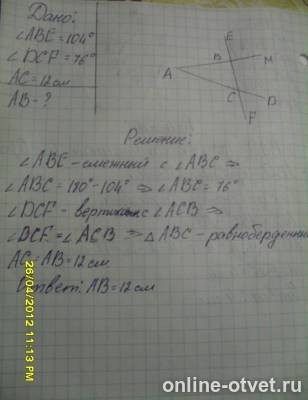 Дано:
∠ABE = 104°
∠DCF = 76°
AC = 12 см
AB - ?
E
B
M
A
C
D
F
Решение:
∠ABE - смежный с ∠ABC ⇒
∠ABC = 180° - 104° ⇒ ∠ABC = 76°
∠DCF - вертикален с ∠ACB ⇒
∠DCF = ∠ACB ⇒ △ABC - равнобедренный
AC = AB = 12 см
Ответ: AB = 12 см
26/04/2012 11:13 PM
online-otvet.ru